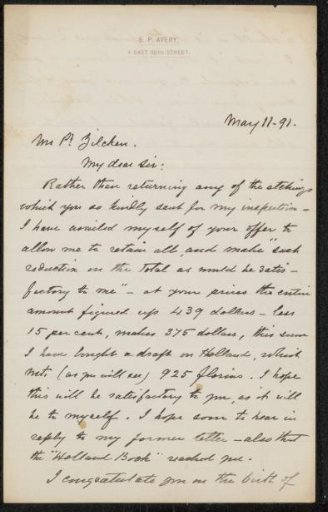 S. P. AVERY,
4 EAST 38TH STREET.
May 11 - 91.
Mr Ph Zilcken.
My dear Sir:
Rather than returning any of the etchings
which you so kindly sent for my inspection -
I have availed myself of your offer to
allow me to retain all and make "such
reduction on the total as would be satis-
factory to me" - at your prices the entire
amount figured ups 439 dollars - less
15 per cent, makes 375 dollars, this sum
I have bought a draft on Holland, which
nets (as you will see) 925 florins. I hope
this will be satisfactory to you, as it will
be to myself. I hope soon to hear in
reply to my former letter - also that
the "Holland Book" reached you.
I congratulate you on the birth of